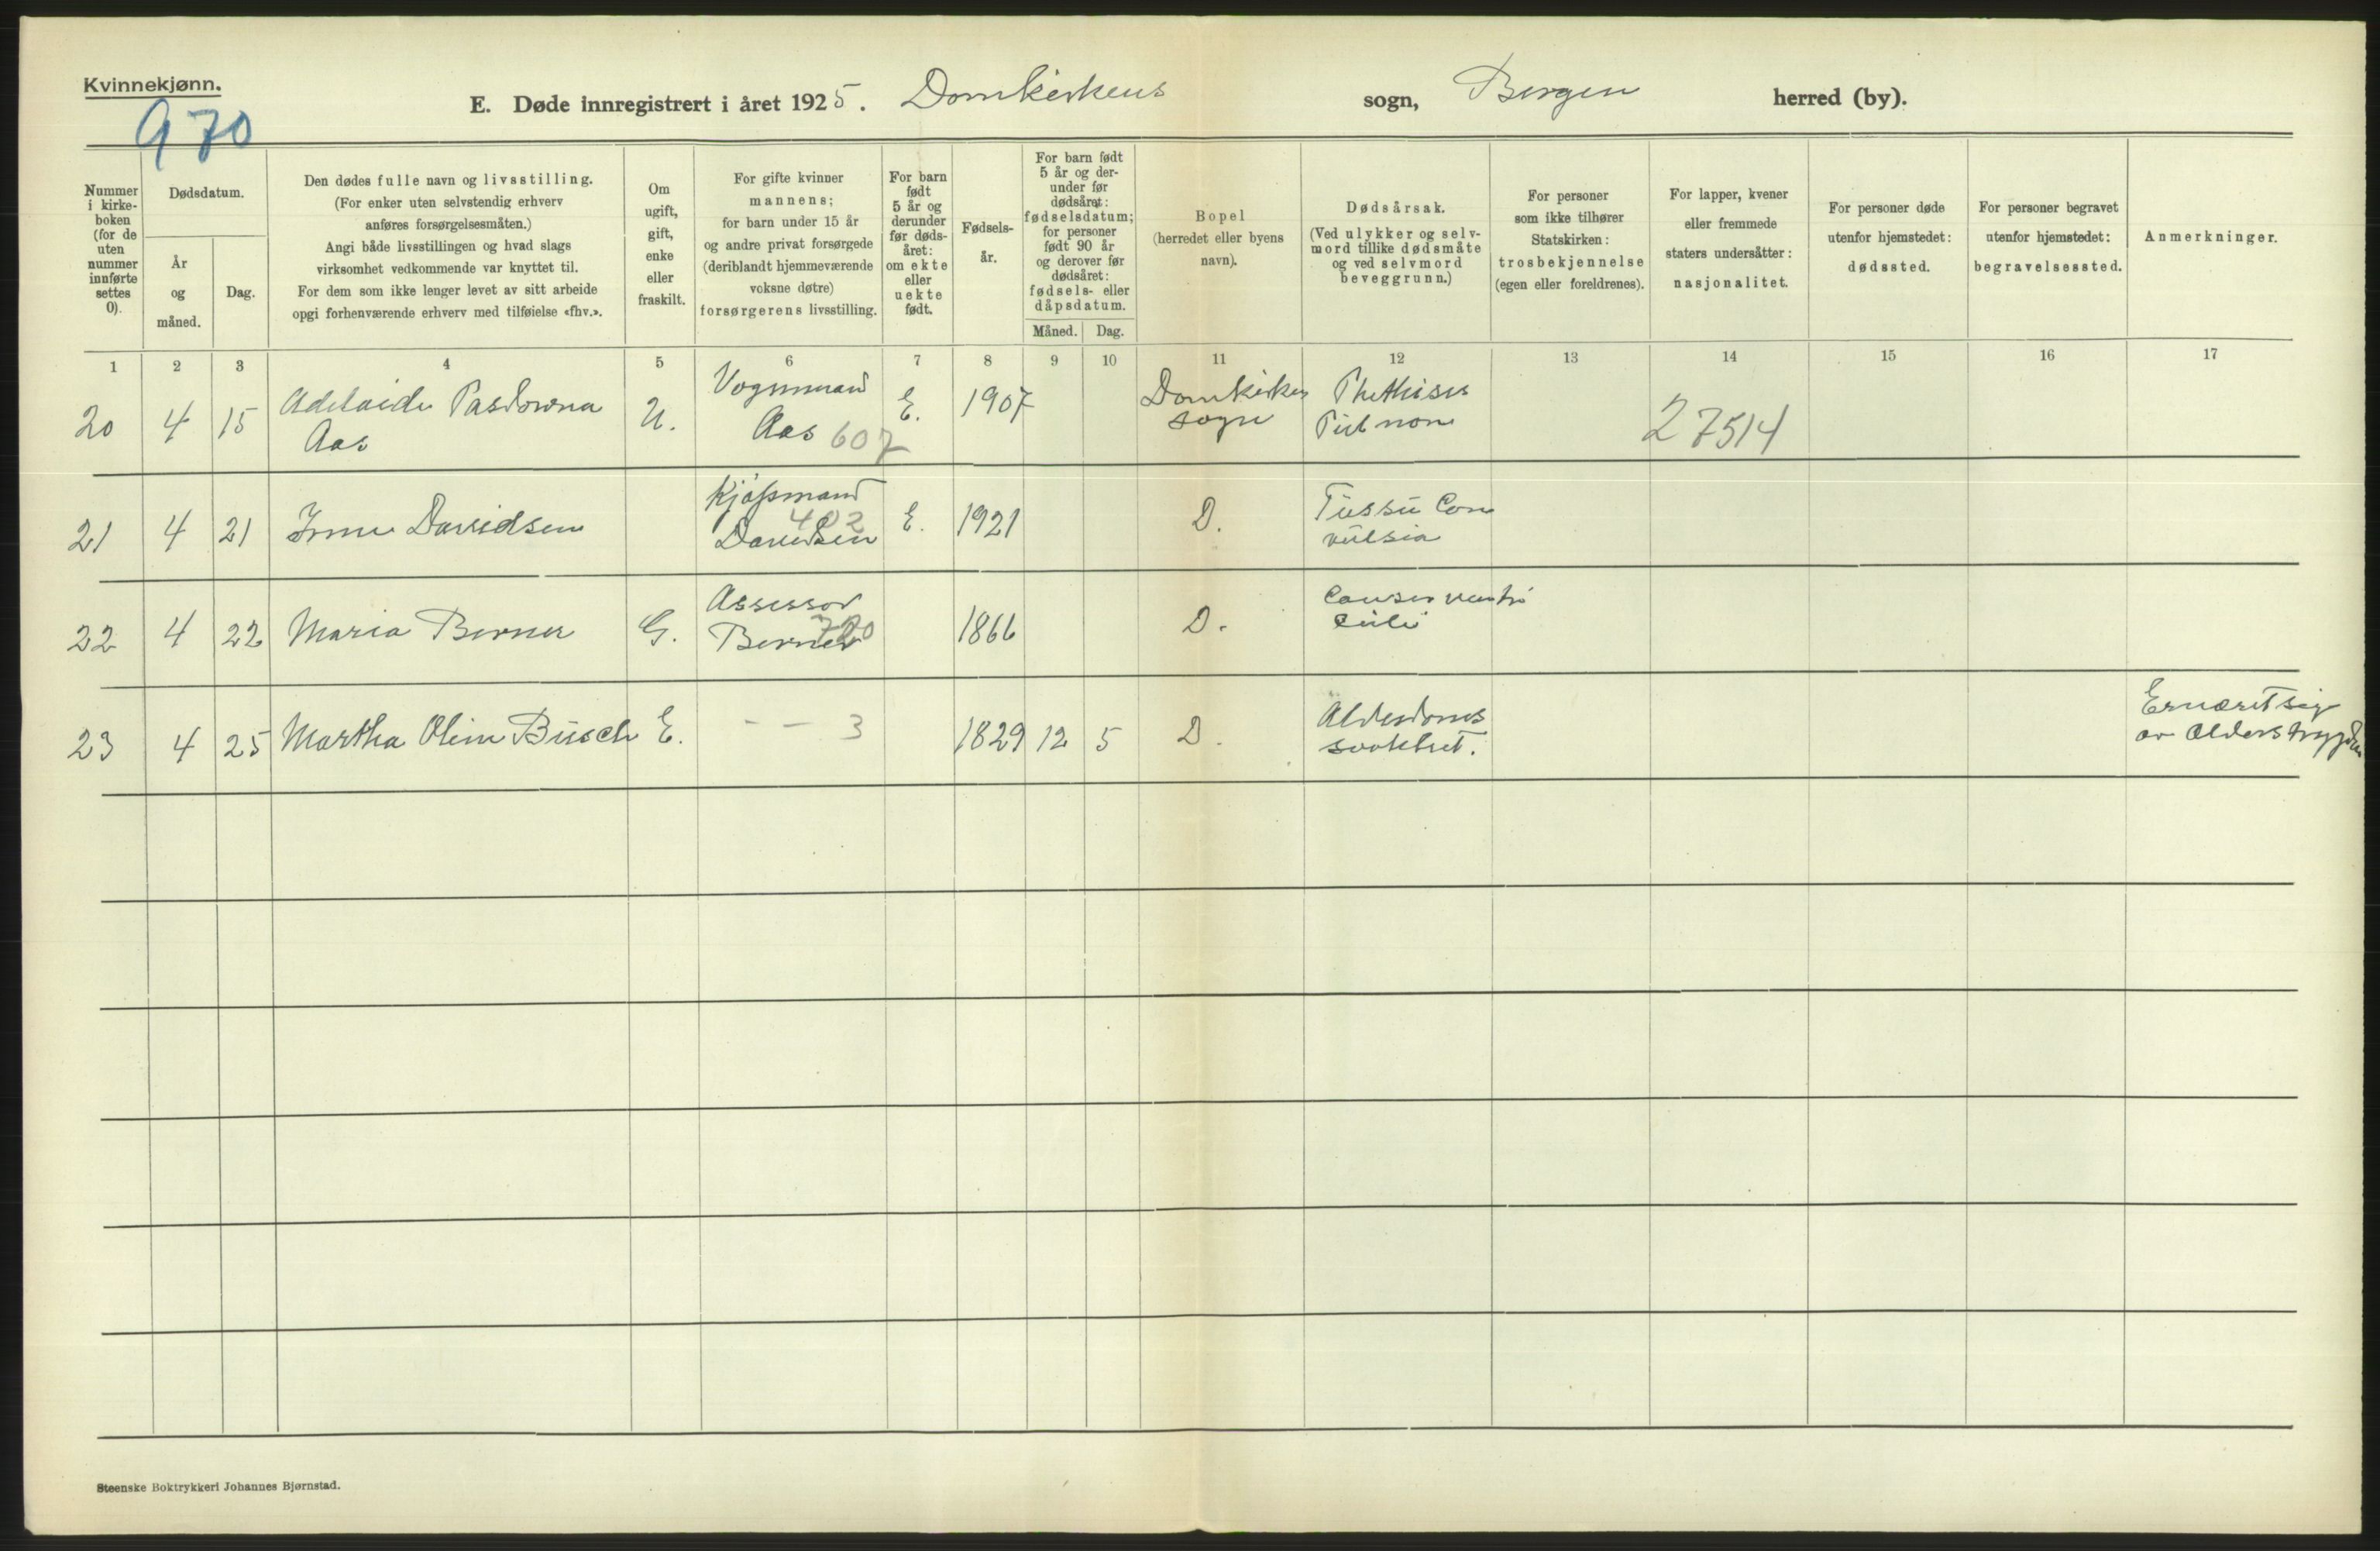 Kvinnekjønn.
970
E. Døde innregistrert i året 1925. Domkirkens sogn, Bergen herred (by).
Nummer i kirke-boken (for de uten nummer innførte settes 0).
Dødsdatum.
År og måned.
Dag.
Den dødes fulle navn og livsstilling.
(For enker uten selvstendig erhverv
anføres forsørgelsesmåten.)
Angi både livsstillingen og hvad slags
virksomhet vedkommende var knyttet til.
For dem som ikke lenger levet av sitt arbeide
opgi forhenværende erhverv med tilføielse «fhv.».
Om ugift, gift, enke eller fraskilt.
For gifte kvinner
mannens;
for barn under 15 år
og andre privat forsørgede
(deriblandt hjemmeværende
voksne døtre)
forsørgerens livsstilling.
For barn født 5 år og derunder før døds-året: om ekte eller uekte født.
Fødsels-år.
For barn født
5 år og der-
under før
dødsåret:
fødselsdatum;
for personer
født 90 år
og derover før
dødsåret:
fødsels- eller
dåpsdatum.
Måned. Dag.
Bopel
(herredet eller byens
navn).
Dødsårsak.
(Ved ulykker og selv-
mord tillike dødsmåte
og ved selvmord
beveggrunn.)
For personer
som ikke tilhører
Statskirken:
trosbekjennelse
(egen eller foreldrenes).
For lapper, kvener
eller fremmede
staters undersåtter:
nasjonalitet.
For personer døde
utenfor hjemstedet:
dødssted.
For personer begravet
utenfor hjemstedet:
begravelsessted.
Anmerkninger.
1 2 3 4 5 6 7 8 9 10 11 12 13 14 15 16 17
20 4 15 Adelaide Aas U. Vognmand Aas 607 E. 1907 Domkirkes sogn Phethisis 27514
21 4 21 Davidsen Kjøpmand Davidsen 402 E. 1921 D. Tussu Con vulsia
22 4 22 Maria Berner G. Assessor Berner 720 1866 D.
23 4 25 Martha Oline Busch E. - - 3 1829 12 5 D. Alderdoms svakhet. Ernæret sig av Alderstrygden
Steenske Boktrykkeri Johannes Bjørnstad.